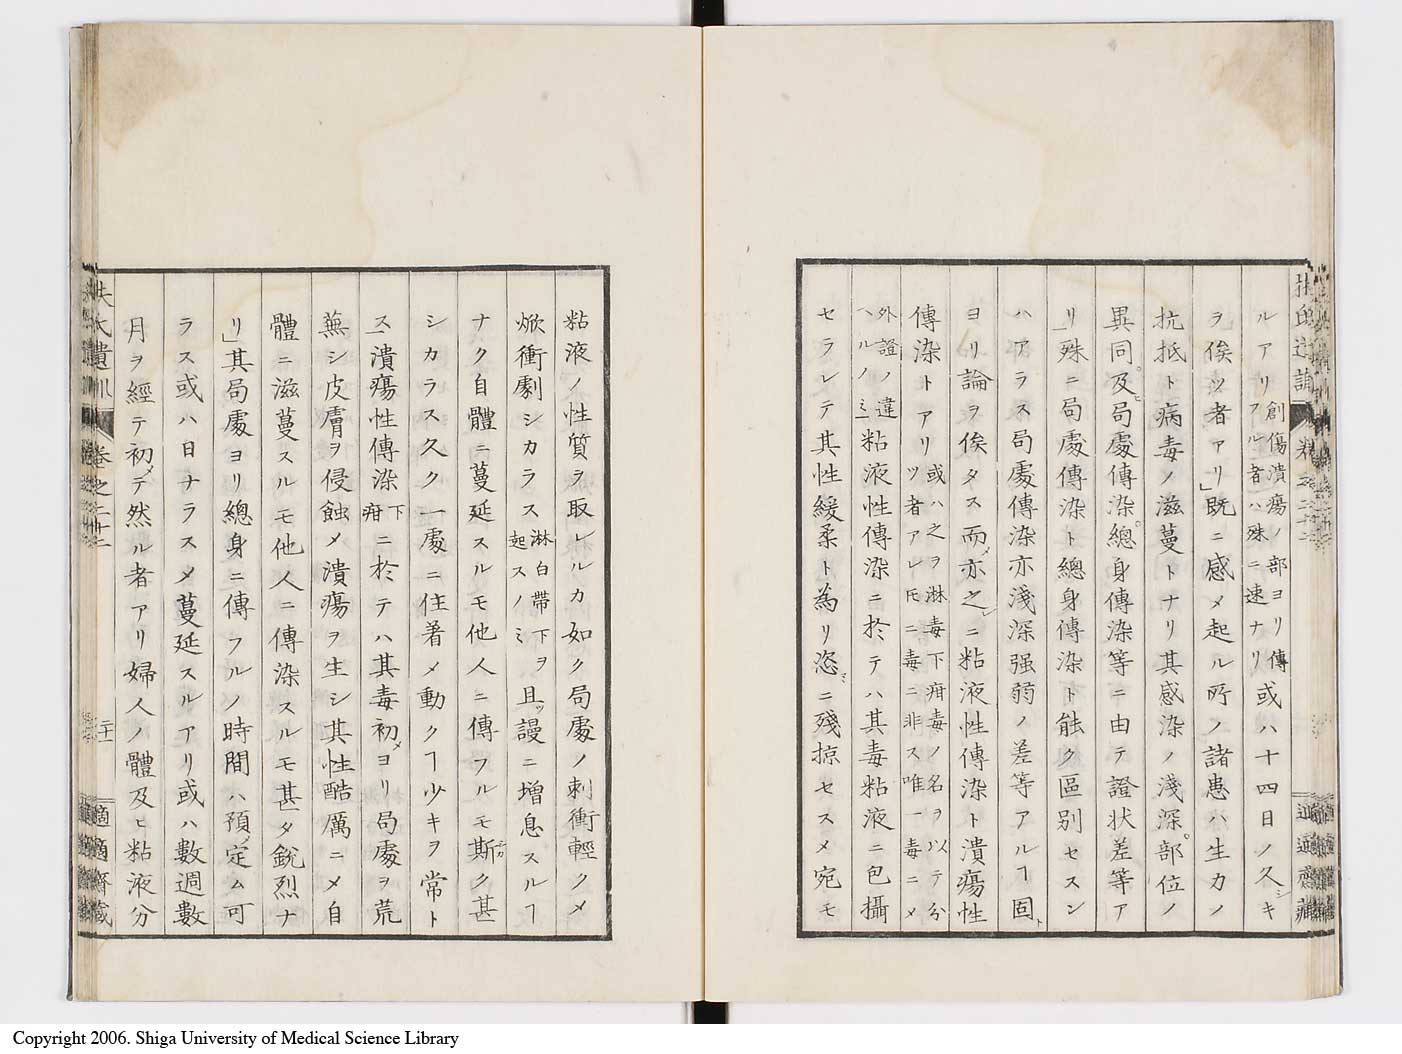 ルアリ創傷潰瘍ノ部ヨリ傳フル者ハ殊ニ速ナリ或ハ十四日ノ久シキ
ヲ俟ツ者アリ」既ニ感メ起ル所ノ諸患ハ生力ノ
抗抵ト病毒ノ滋蔓トナリ其感染ノ淺深。部位ノ
異同。及ヒ局處傳染。總身傳染等ニ由テ證状差等ア
リ」殊ニ局處傳染ト總身傳染ト能ク區別セスン
ハアラス局處傳染亦淺深强弱ノ差等アルヿ固ト
ヨリ論ヲ俟タス而メ亦之レニ粘液性傳染ト潰瘍性
傳染トアリ或ハ之ヲ淋毒下疳毒ノ名ヲ以テ分ツ者アレ𪜈二毒ニ非ス唯一毒ニメ
外證ノ違ヘルノミ粘液性傳染ニ於テハ其毒粘液ニ包攝
セラレテ其性緩柔ト為リ恣ニ殘掠セスメ宛モ
粘液ノ性質ヲ取レルカ如ク局處ノ刺衝輕クメ
焮衝劇シカラス淋白帶下ヲ起スノミ且ツ謾ニ増息スルヿ
ナク自體ニ蔓延スルモ他人ニ傳フルモ斯ク甚
シカラス久ク一處ニ住着メ動クヿ少キヲ常ト
ス」潰瘍性傳染下疳ニ於テハ其毒初メヨリ局處ヲ荒
蕪シ皮膚ヲ侵蝕メ潰瘍ヲ生シ其性酷厲ニメ自
體ニ滋蔓スルモ他人ニ傳染スルモ甚タ銳烈ナ
リ」其局處ヨリ總身ニ傳フルノ時間ハ預メ定ム可
ラス或ハ日ナラスメ蔓延スルアリ或ハ數週數
月ヲ經テ初メテ然ル者アリ婦人ノ體及ヒ粘液分
扶氏遺訓 卷之二十二 二十一 適適齋藏
Copyright 2006. Shiga University of Medical Science Library